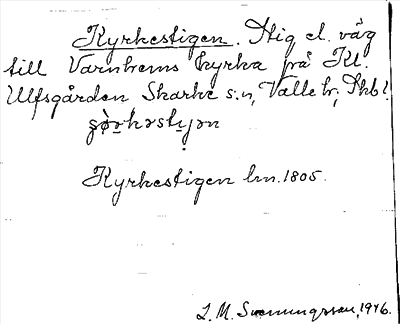 Kyrkestigen. Stig el. väg
till Varnhems kyrka på Kl.
Ulfsgården Skarke s:n, Valle hd, Skbl.
Kyrkestigen lm. 1805.
L. M. Svenungsson, 1946.